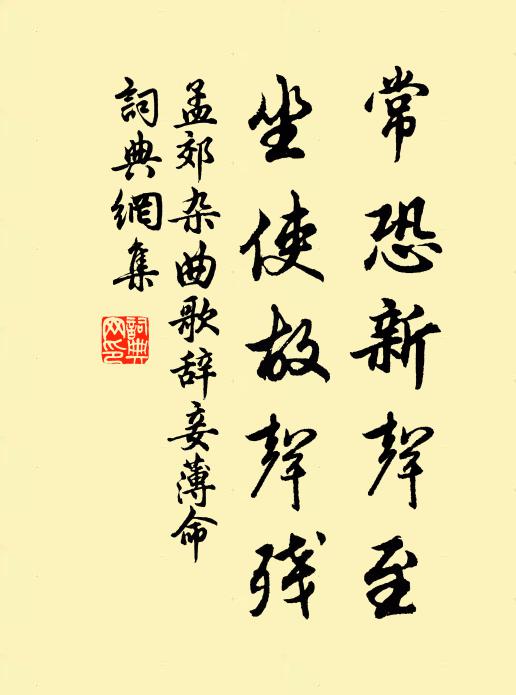 常恐新聲至
坐使故聲残
孟郊杂曲歌辞妾薄命
詞典網集
詞典网印